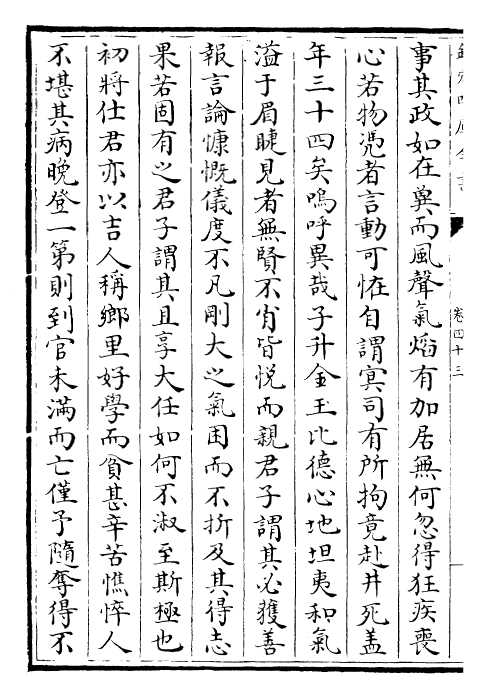 欽定四庫全書
卷四十三
事其政如在冀而風聲氣熖有加居無何忽得狂疾喪
心若物凴者言動可恠自謂冥司有所拘竟赴井死盖
年三十四矣嗚呼異哉子升金玉比德心地坦夷和氣
溢于眉睫見者無賢不肖皆悦而親君子謂其必獲善
報言論慷慨儀度不凡剛大之氣困而不折及其得志
果若固有之君子謂其且享大任如何不淑至斯極也
初將仕君亦以吉人稱鄉里好學而貧甚辛苦憔悴人
不堪其病晩登一第則到官未滿而亡僅予隨奪得不